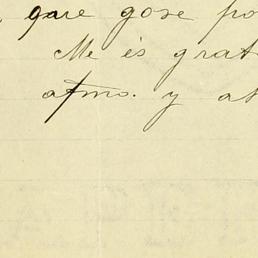 que gose po
Me es grat
atmo. y at